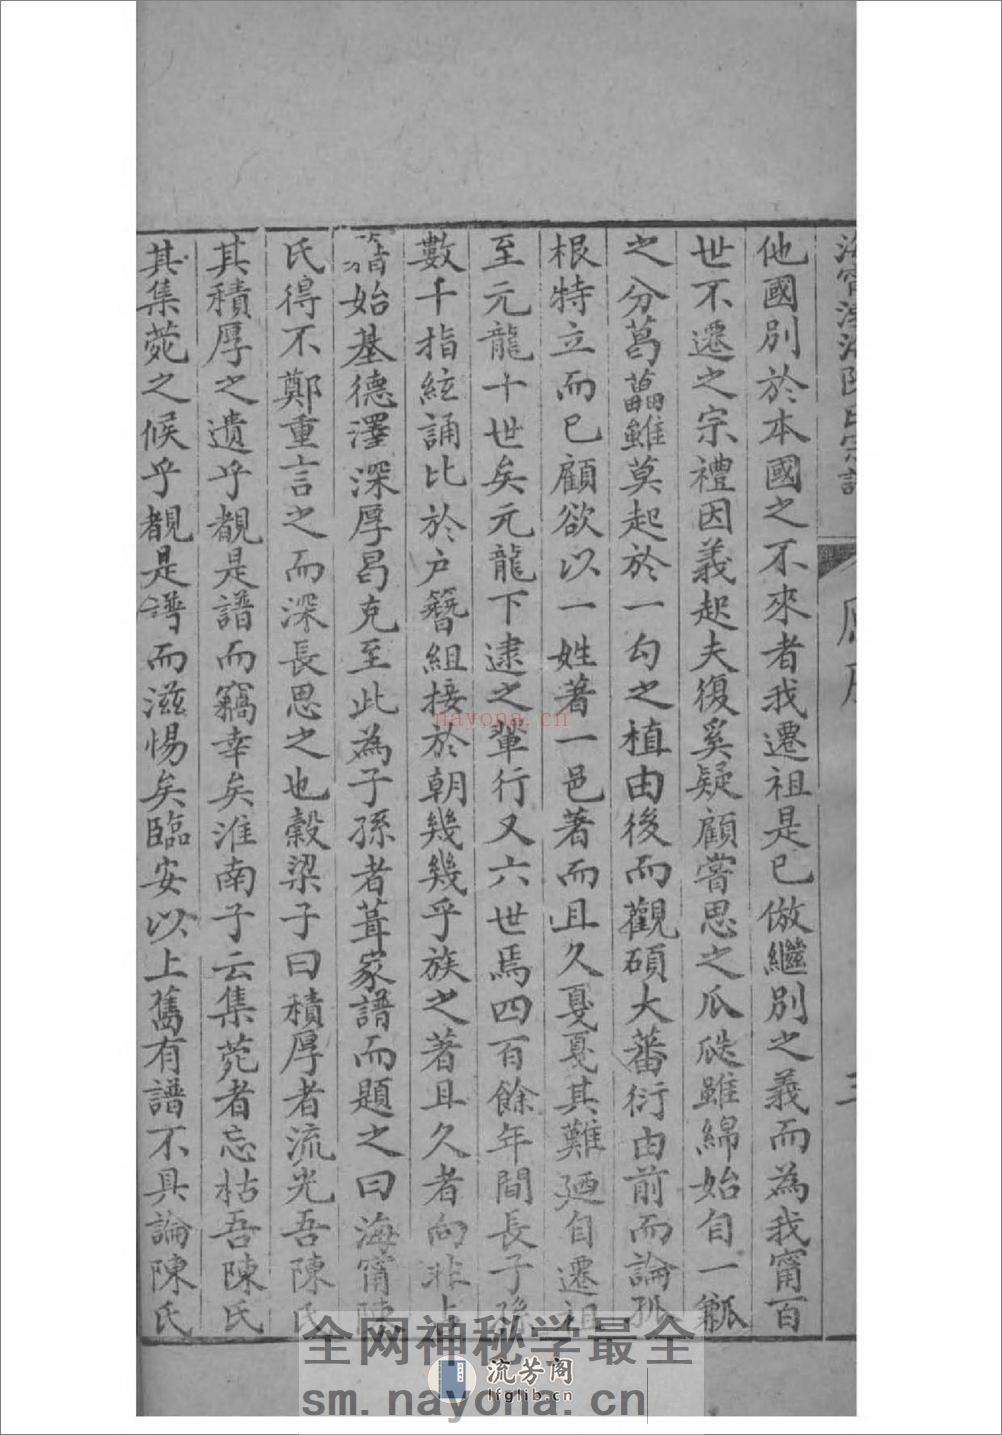 他國別於本國之不來者我遷祖是已倣繼別之義而為我甯百
世不遷之宗禮因義起夫復奚疑顧嘗思之瓜瓞雖綿始自一瓤
之分葛藟雖莫起於一勾之植由後而觀碩大蕃衍由前而論孤
根特立而已顧欲以一姓著一邑著而且久戛戛其難廼自遷祖
至元龍十世矣元龍下逮之輩行又六世焉四百餘年間長子孫
數千指絃誦比於户簪組接於朝幾幾乎族之著且久者向非上
始基德澤深厚曷克至此為子孫者葺家譜而題之曰海甯陳
氏得不鄭重言之而深長思之也穀梁子曰積厚者流光吾陳氏
其積厚之遺乎覩是譜而竊幸矣淮南子云集菀者忘枯吾陳氏
其集菀之候乎覩是譜而滋惕矣臨安以上舊有譜不具論陳氏
nayona.cn
全网神秘学最全
流芳阁
lfglib.cn
sm.nayona.cn